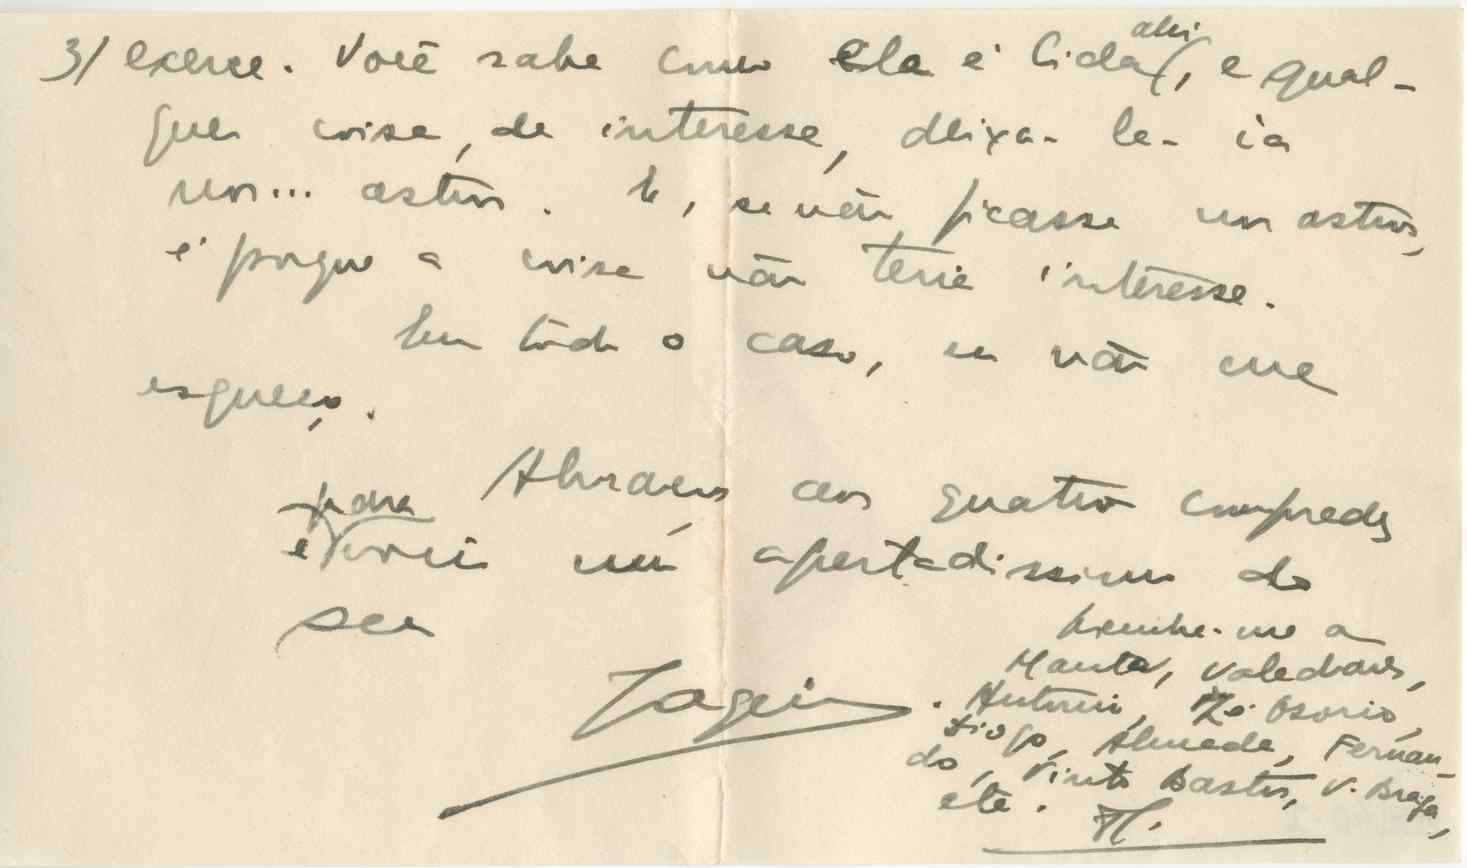 ahi
3/ exerce. Você sabe como ela é lida(, e qual-
quer coisa, de interesse, deixa-lo-ia
nos... astros. E, se não ficasse nos astros,
é porque a coisa não teria interesse.
Em todo o caso, eu não me
esqueço.
Abraços aos quatro compadres
para
e Você um apertadissimo do
seu
Tagein
lembre-me a
Manta, Valadares,
Antonio, Zé Osorio,
Diogo, Almada, Fernan-
do, Pinto Bastos, V. Braga,
etc.